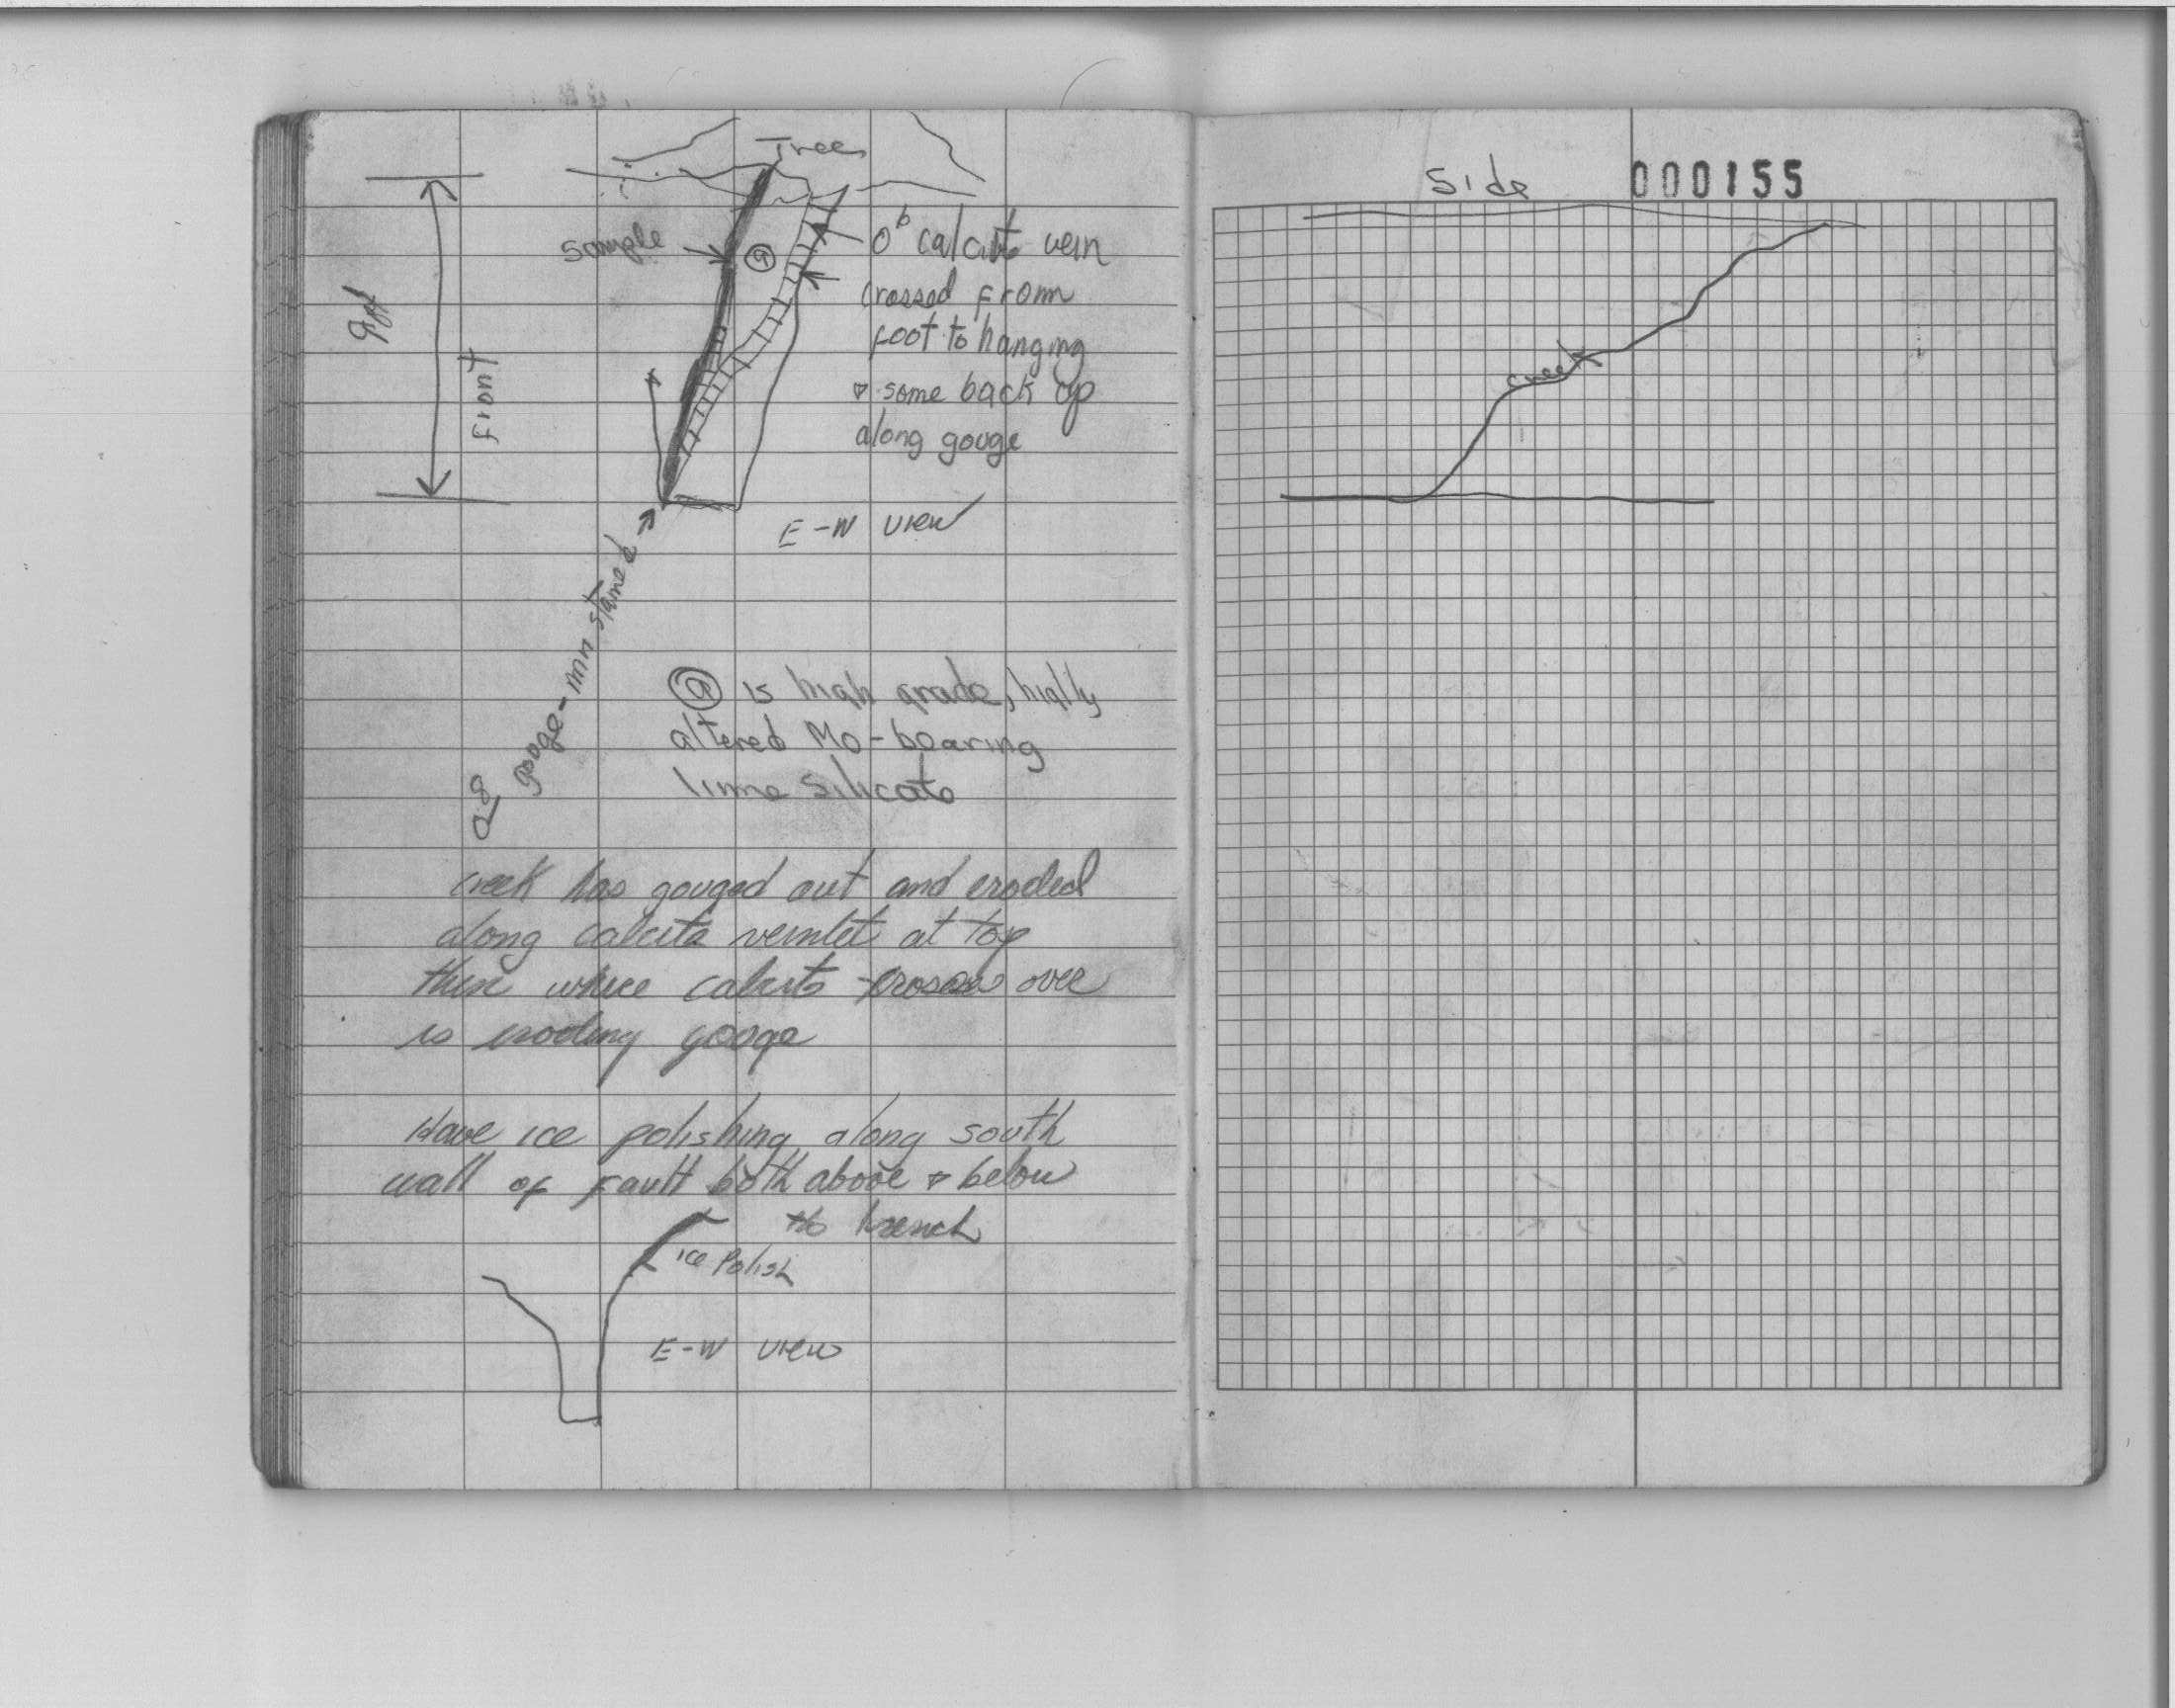 Tree
sample
a
9ft
front
calcite vein
crossed from
foot to hanging
some back up
along gouge
E-W view
gouge - mn stained
ⓐ is high grade, highly
altered Mo-bearing
lime silicate
creek has gouged out and eroded
along calcite veinlet at top
then where calcite crosses over
is eroding gouge
Have ice polishing along south
wall of fault both above & below
trench
ice Polish
E-W view
Side 000155
creek